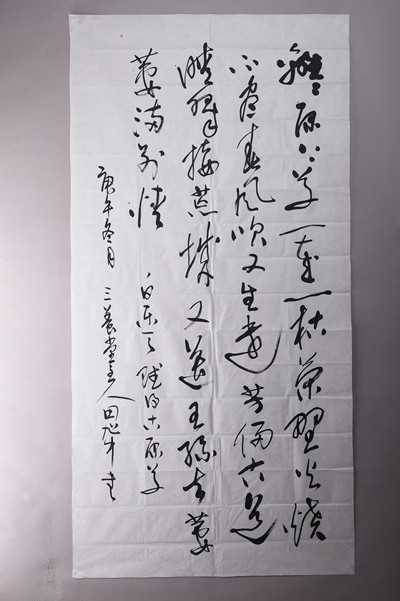 離離原上草一歲一枯榮野火燒
不盡春風吹又生遠芳侵古道
晴翠接荒城又送王孫去萋
萋滿別情
白樂天賦得古原草
庚午冬月 三養堂主人田旭中書